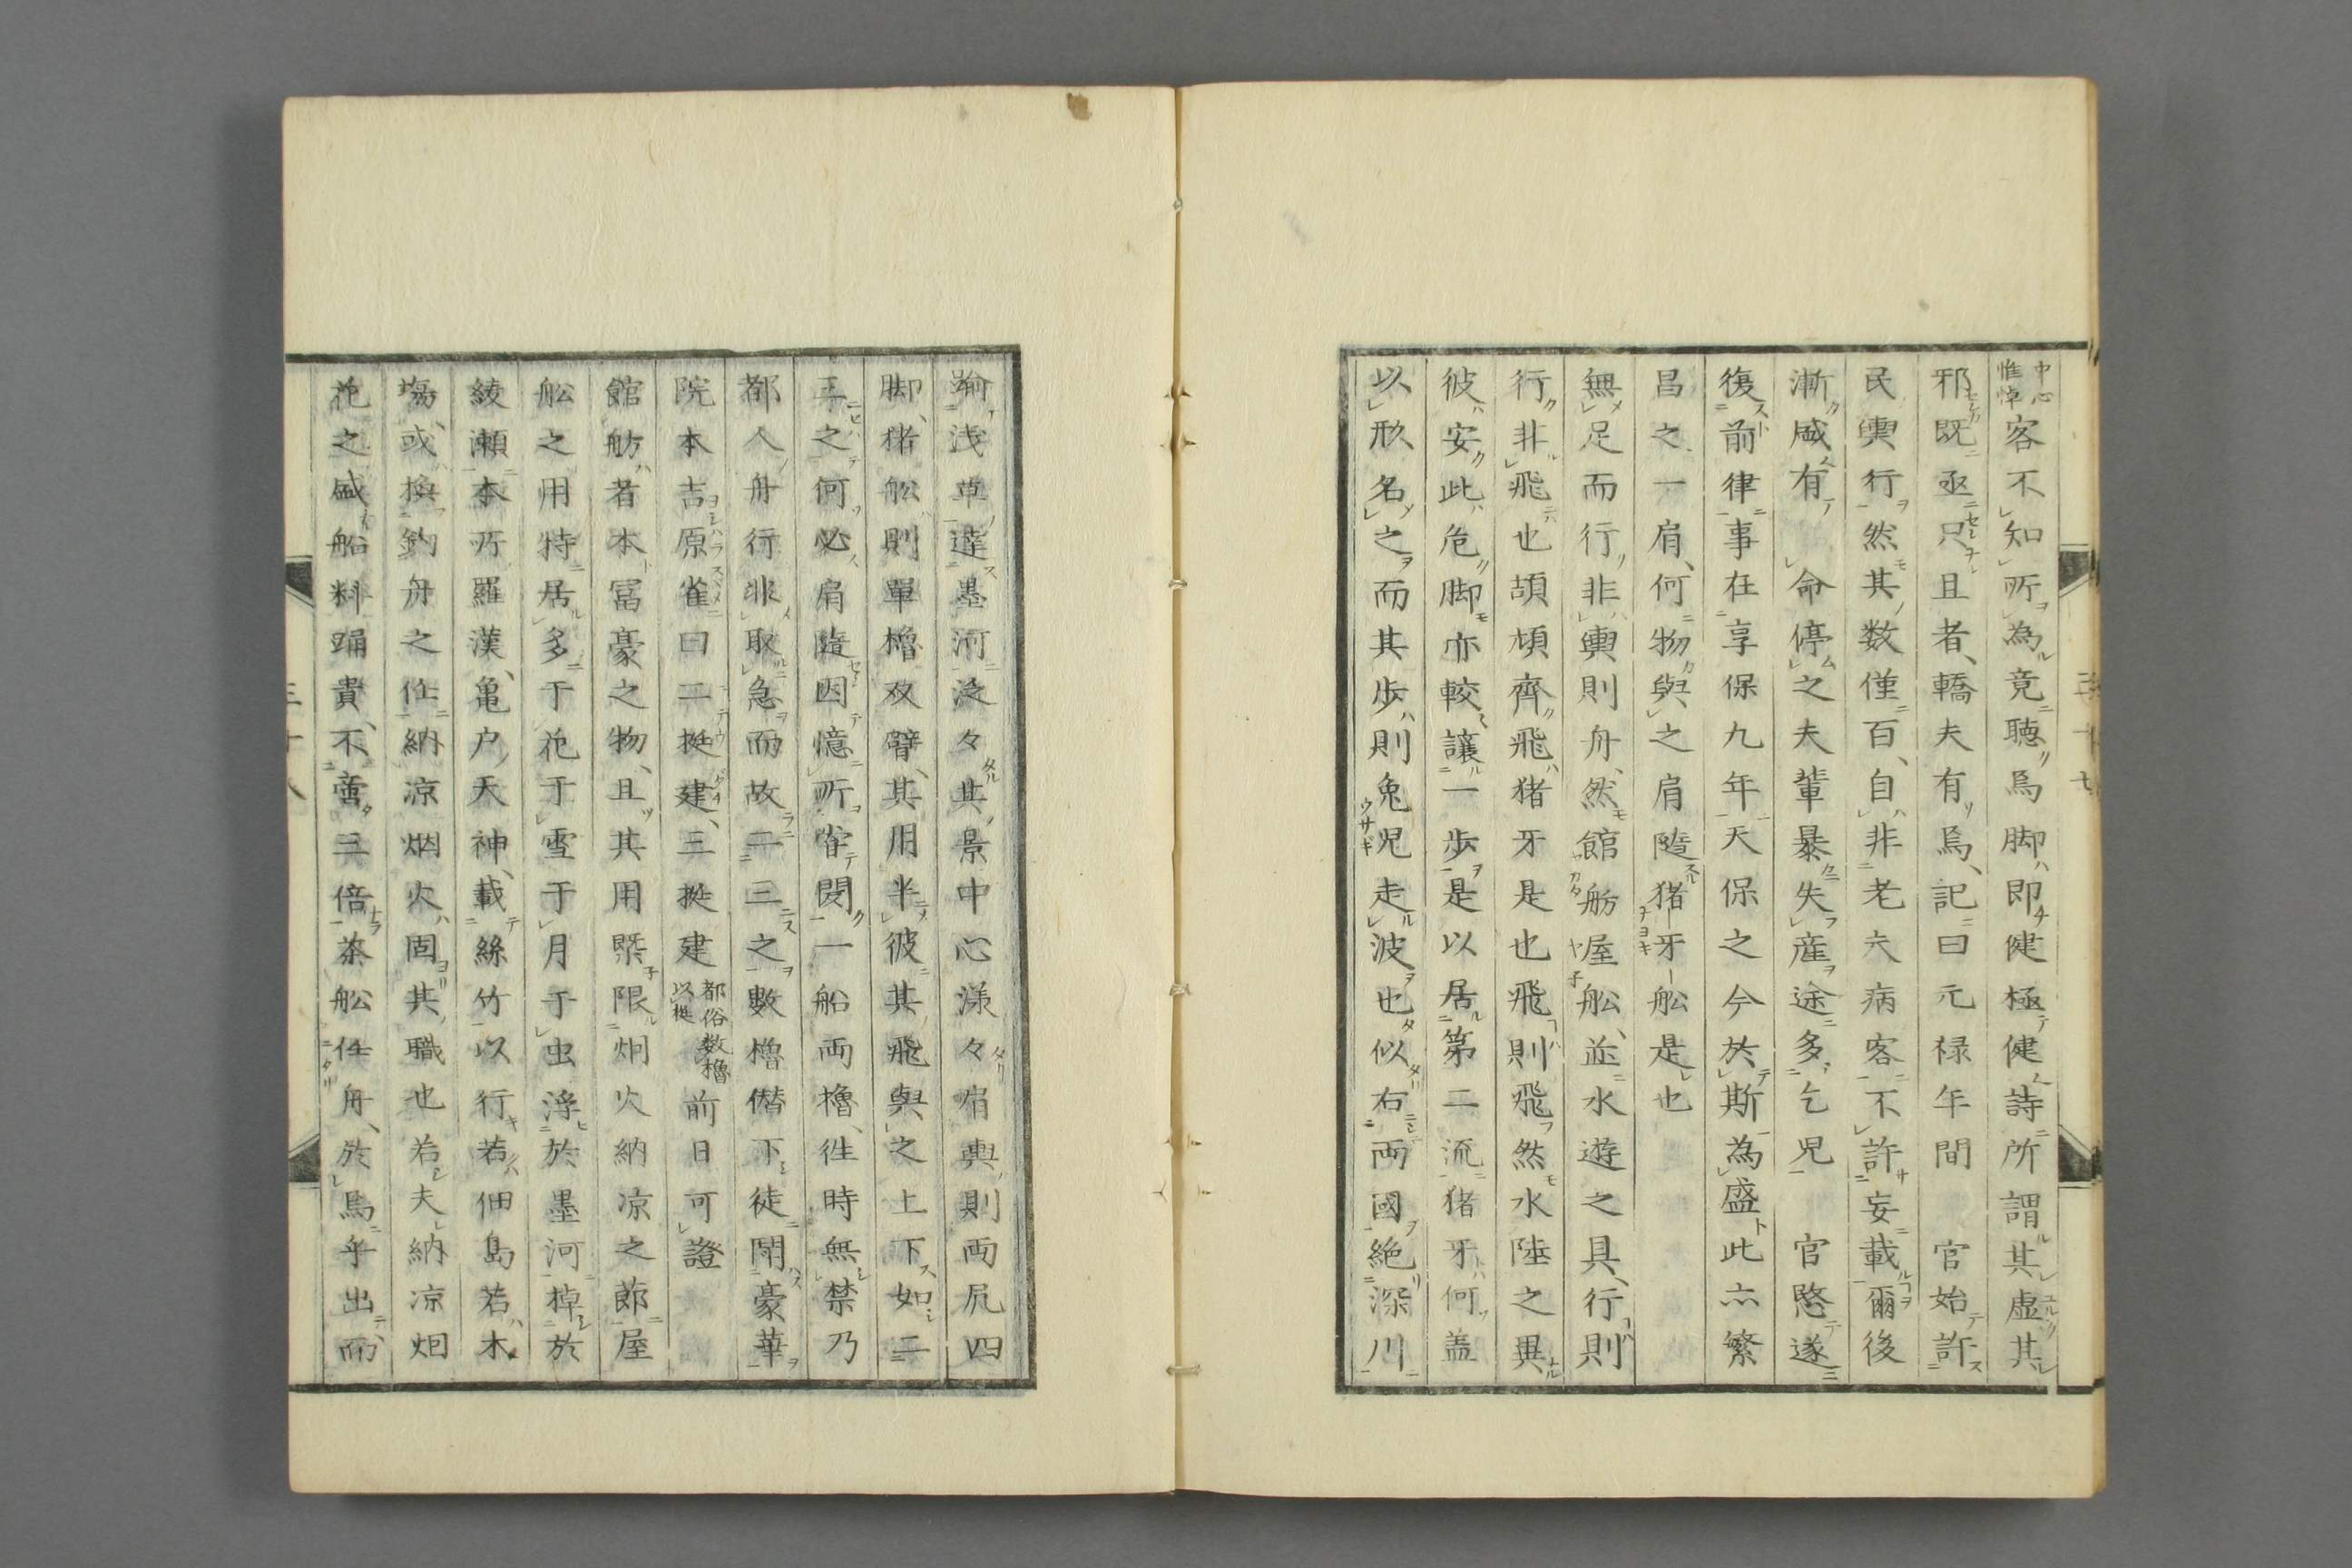 中心
惟悼
客不知所為竟聴烏脚即健極健詩所謂其虚其
邪既亟只且者、轎夫有焉、記曰元禄年間　官始許
民輿行然其数僅百、自非老六病客不許妄載爾後
漸盛有　命停之夫輩暴失産途多乞児　官愍遂
復前律事在享保九年天保之今於斯為盛此亦繁
昌之一肩、何物與之肩随猪牙舩是也
無足而行非輿則舟、然館舫屋舩、並水遊之具、行則
行非飛也頡頏齊飛猪牙是也飛則飛然水陸之異
彼安此危脚亦較讓一歩是以居第二流猪牙何蓋
以形名之而其歩則兔児走波也似右両國絶深川
三十七
踰浅草達墨河淩々其景中心漾々肩輿則両尻四
脚、猪舩則單櫓双臂、其用半彼其飛與之上下如二
三之何必肩随因憶所嘗閲一船両櫓、徃時無禁乃
都人舟行非取急而故二三之數櫓僭下徒鬧豪華
院本吉原雀曰二挺建、三挺建
都俗数櫓
以挺
前日可證
館舫者本冨豪之物、且其用槩限烟火納凉之節屋
舩之用特居多于花于雪于月于虫浮於墨河棹於
綾瀬本所羅漢、亀户天神、載絲竹以行若佃島若木
塲、或換釣舟之任納凉烟火固其職也若夫納凉烟
花之盛船料踊貴、不啻三倍茶舩任舟、於焉乎出而
三十八